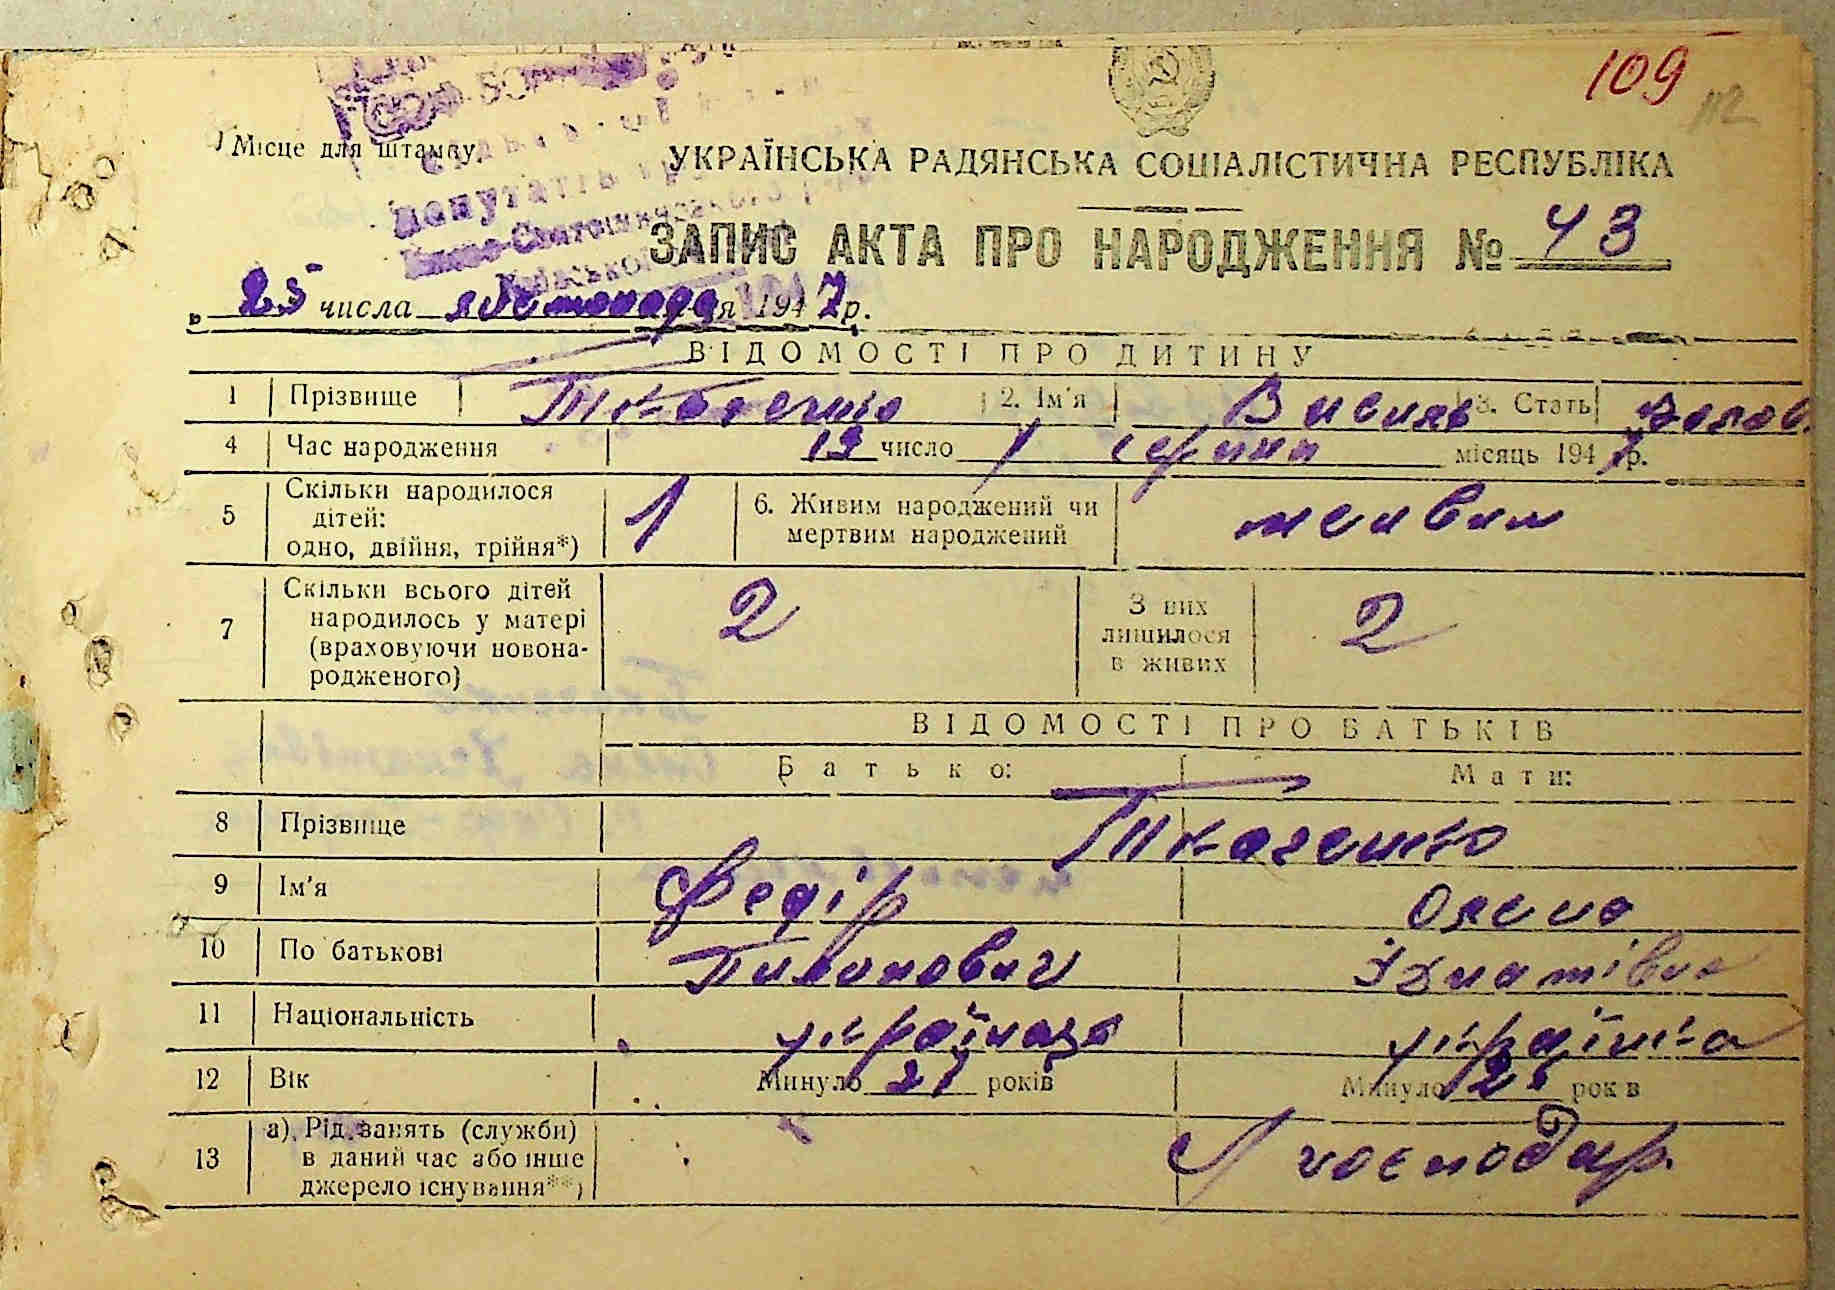 109
112
Місце для штампу
депутатів
Києво-Святошинського
УКРАЇНСЬКА РАДЯНСЬКА СОЦІАЛІСТИЧНА РЕСПУБЛІКА
ЗАПИС АКТА ПРО НАРОДЖЕННЯ № 43
„ 25 числа листопада 1947 р.
ВІДОМОСТІ ПРО ДИТИНУ
1 Прізвище Ткаченко 2. Ім'я Василь 3. Стать чолов.
4 Час народження 19 число серпня місяць 1947 р.
5 Скільки народилося дітей: одно, двійня, трійня*) 1 6. Живим народжений чи мертвим народжений живим
7 Скільки всього дітей народилось у матері (враховуючи новонародженого) 2 З них лишилося в живих 2
ВІДОМОСТІ ПРО БАТЬКІВ
Батько: Мати:
8 Прізвище Ткаченко
9 Ім'я Федір Олена
10 По батькові Пилипович Ігнатівна
11 Національність українець українка
12 Вік Минуло 27 років Минуло років
13 а) Рід занять (служби) в даний час або інше джерело існування**) господар.